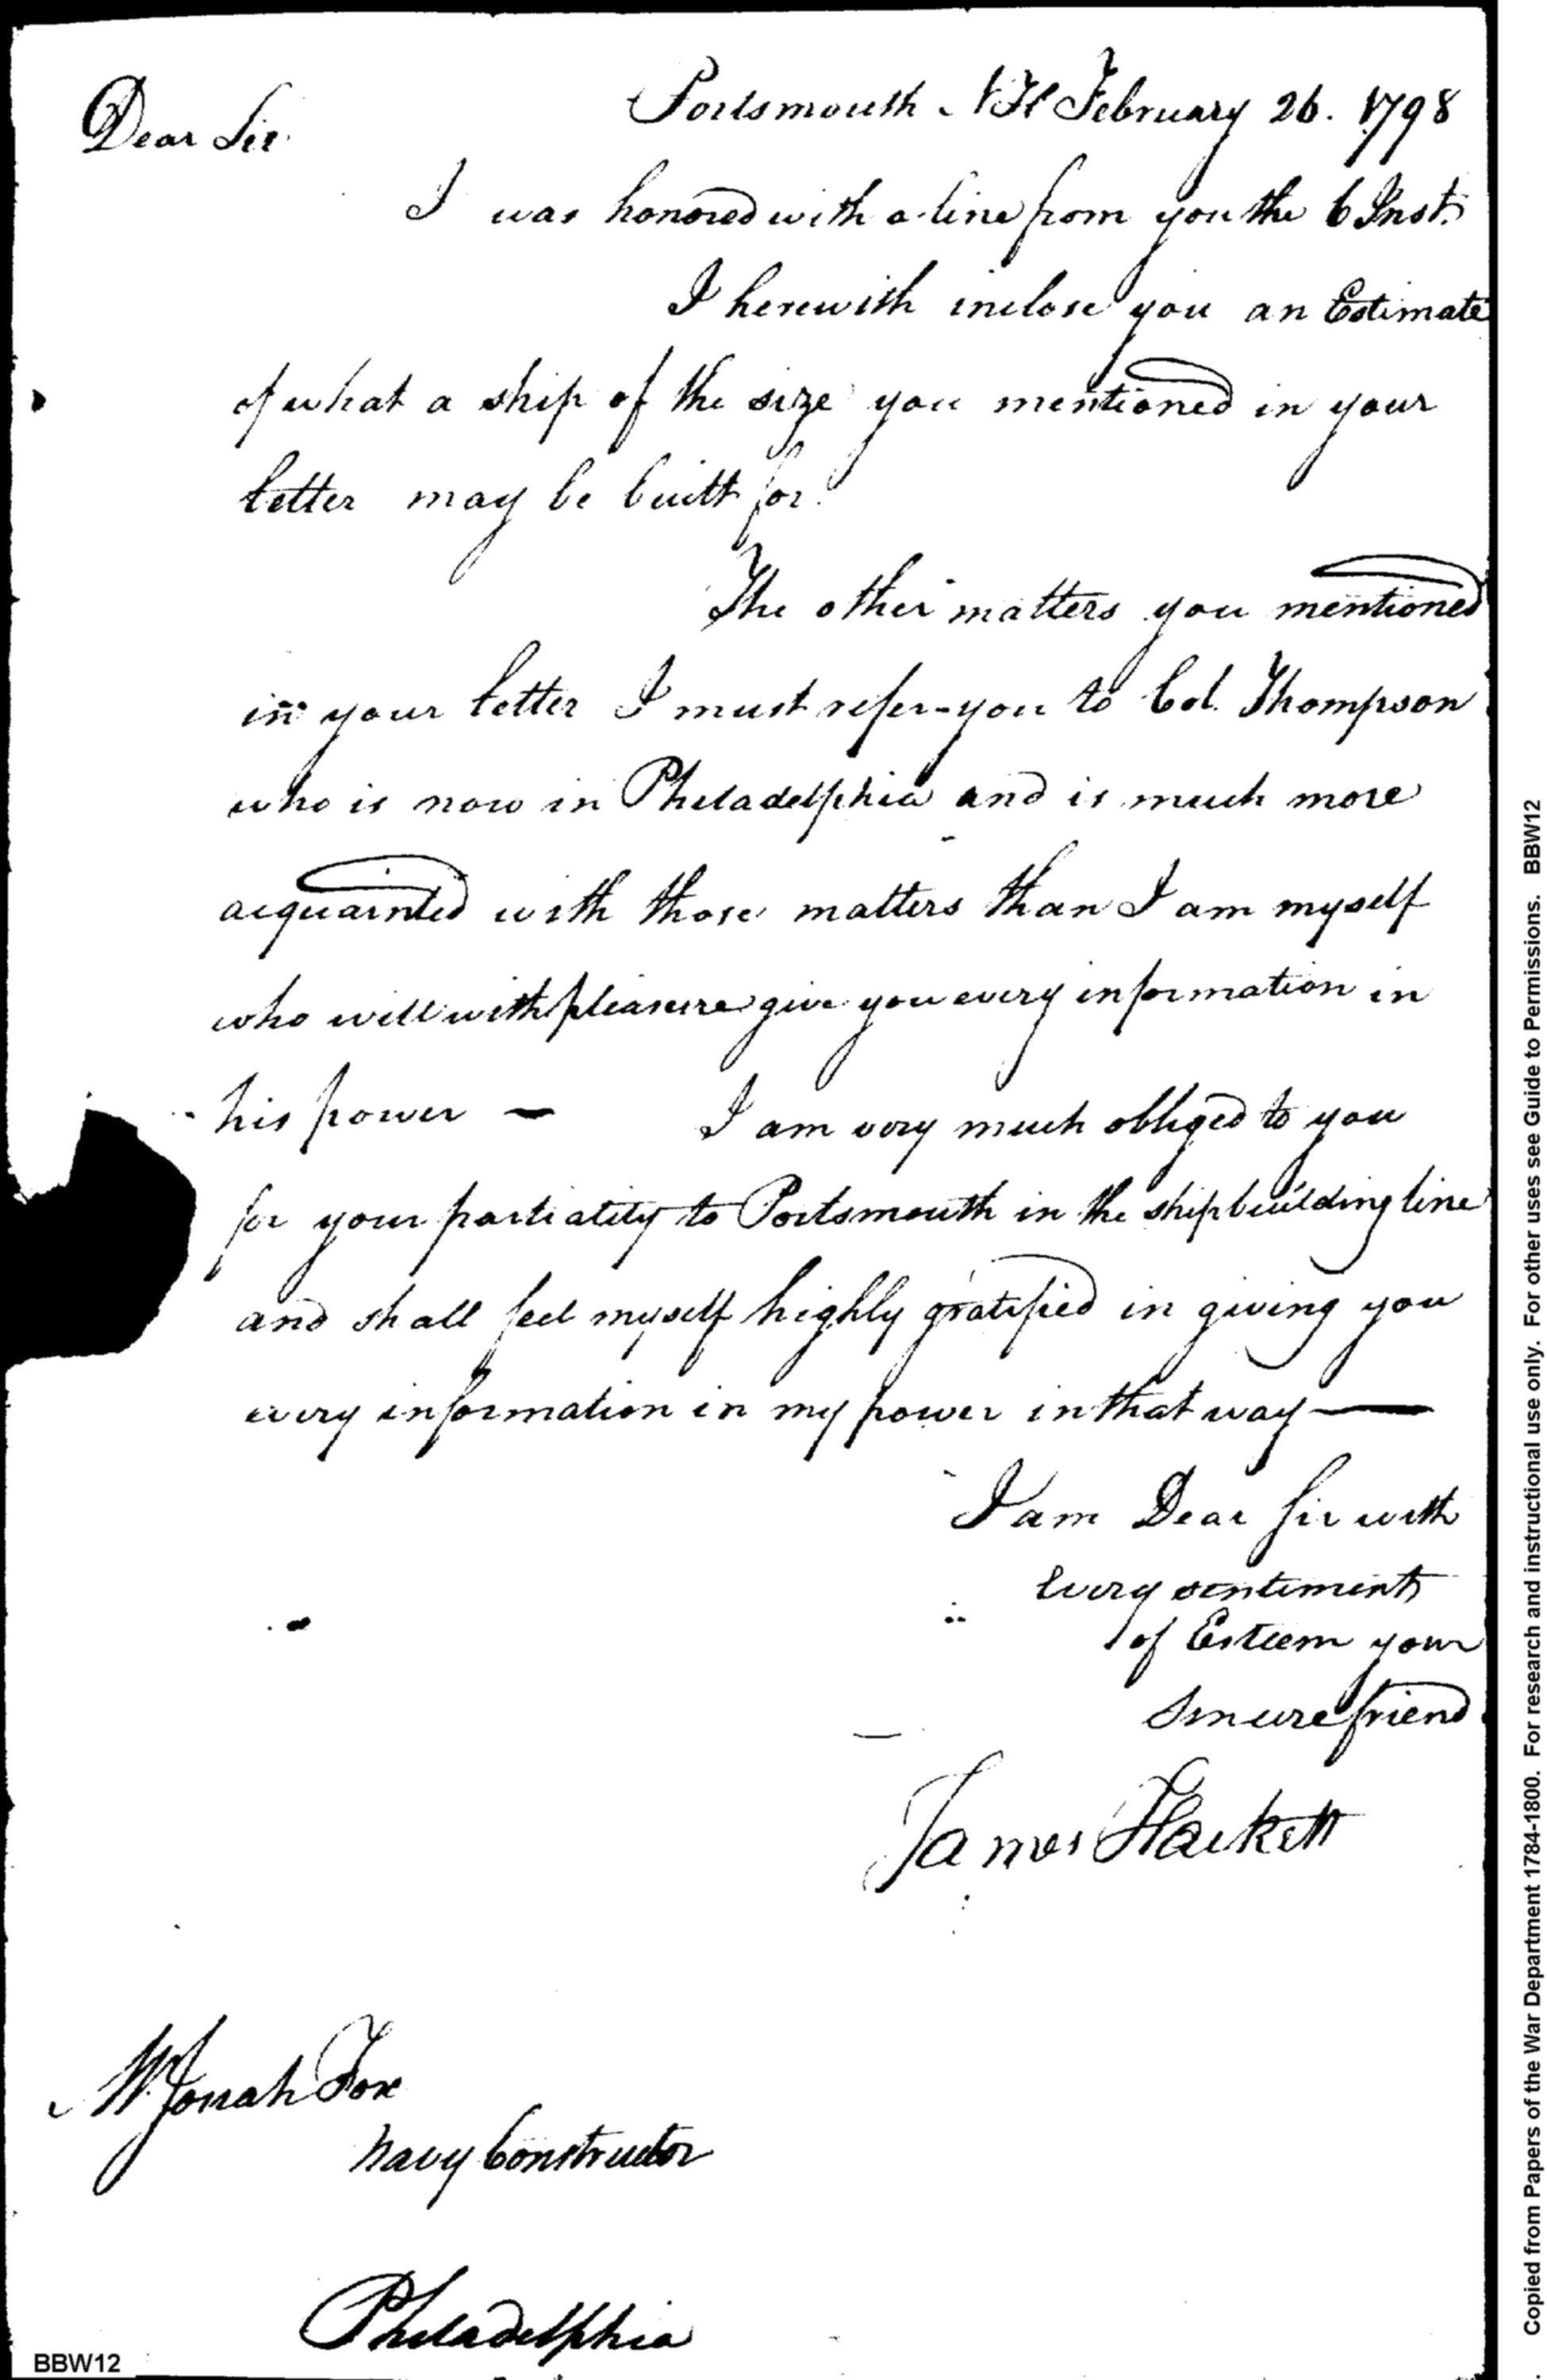 Portsmouth NH February 26. 1798
Dear Sir
I was honored with a line from you the 6 Inst.
I herewith inclose you an Estimate
of what a ship of the size you mentioned in your
letter may be built for.
The other matters you mentioned
in your letter I must refer you to Col. Thompson
who is now in Philadelphia and is much more
acquainted with those matters than I am myself
who will with pleasure give you every information in
his power — I am very much obliged to you
for your partiality to Portsmouth in the shipbuilding line
and shall feel myself highly gratified in giving you
every information in my power in that way —
I am Dear Sir with
every sentiment
of Esteem your
Sincere friend
James Hackett
Mr. Josiah Fox
Navy Constructor
Philadelphia
BBW12
Copied from Papers of the War Department 1784-1800. For research and instructional use only. For other uses see Guide to Permissions. BBW12